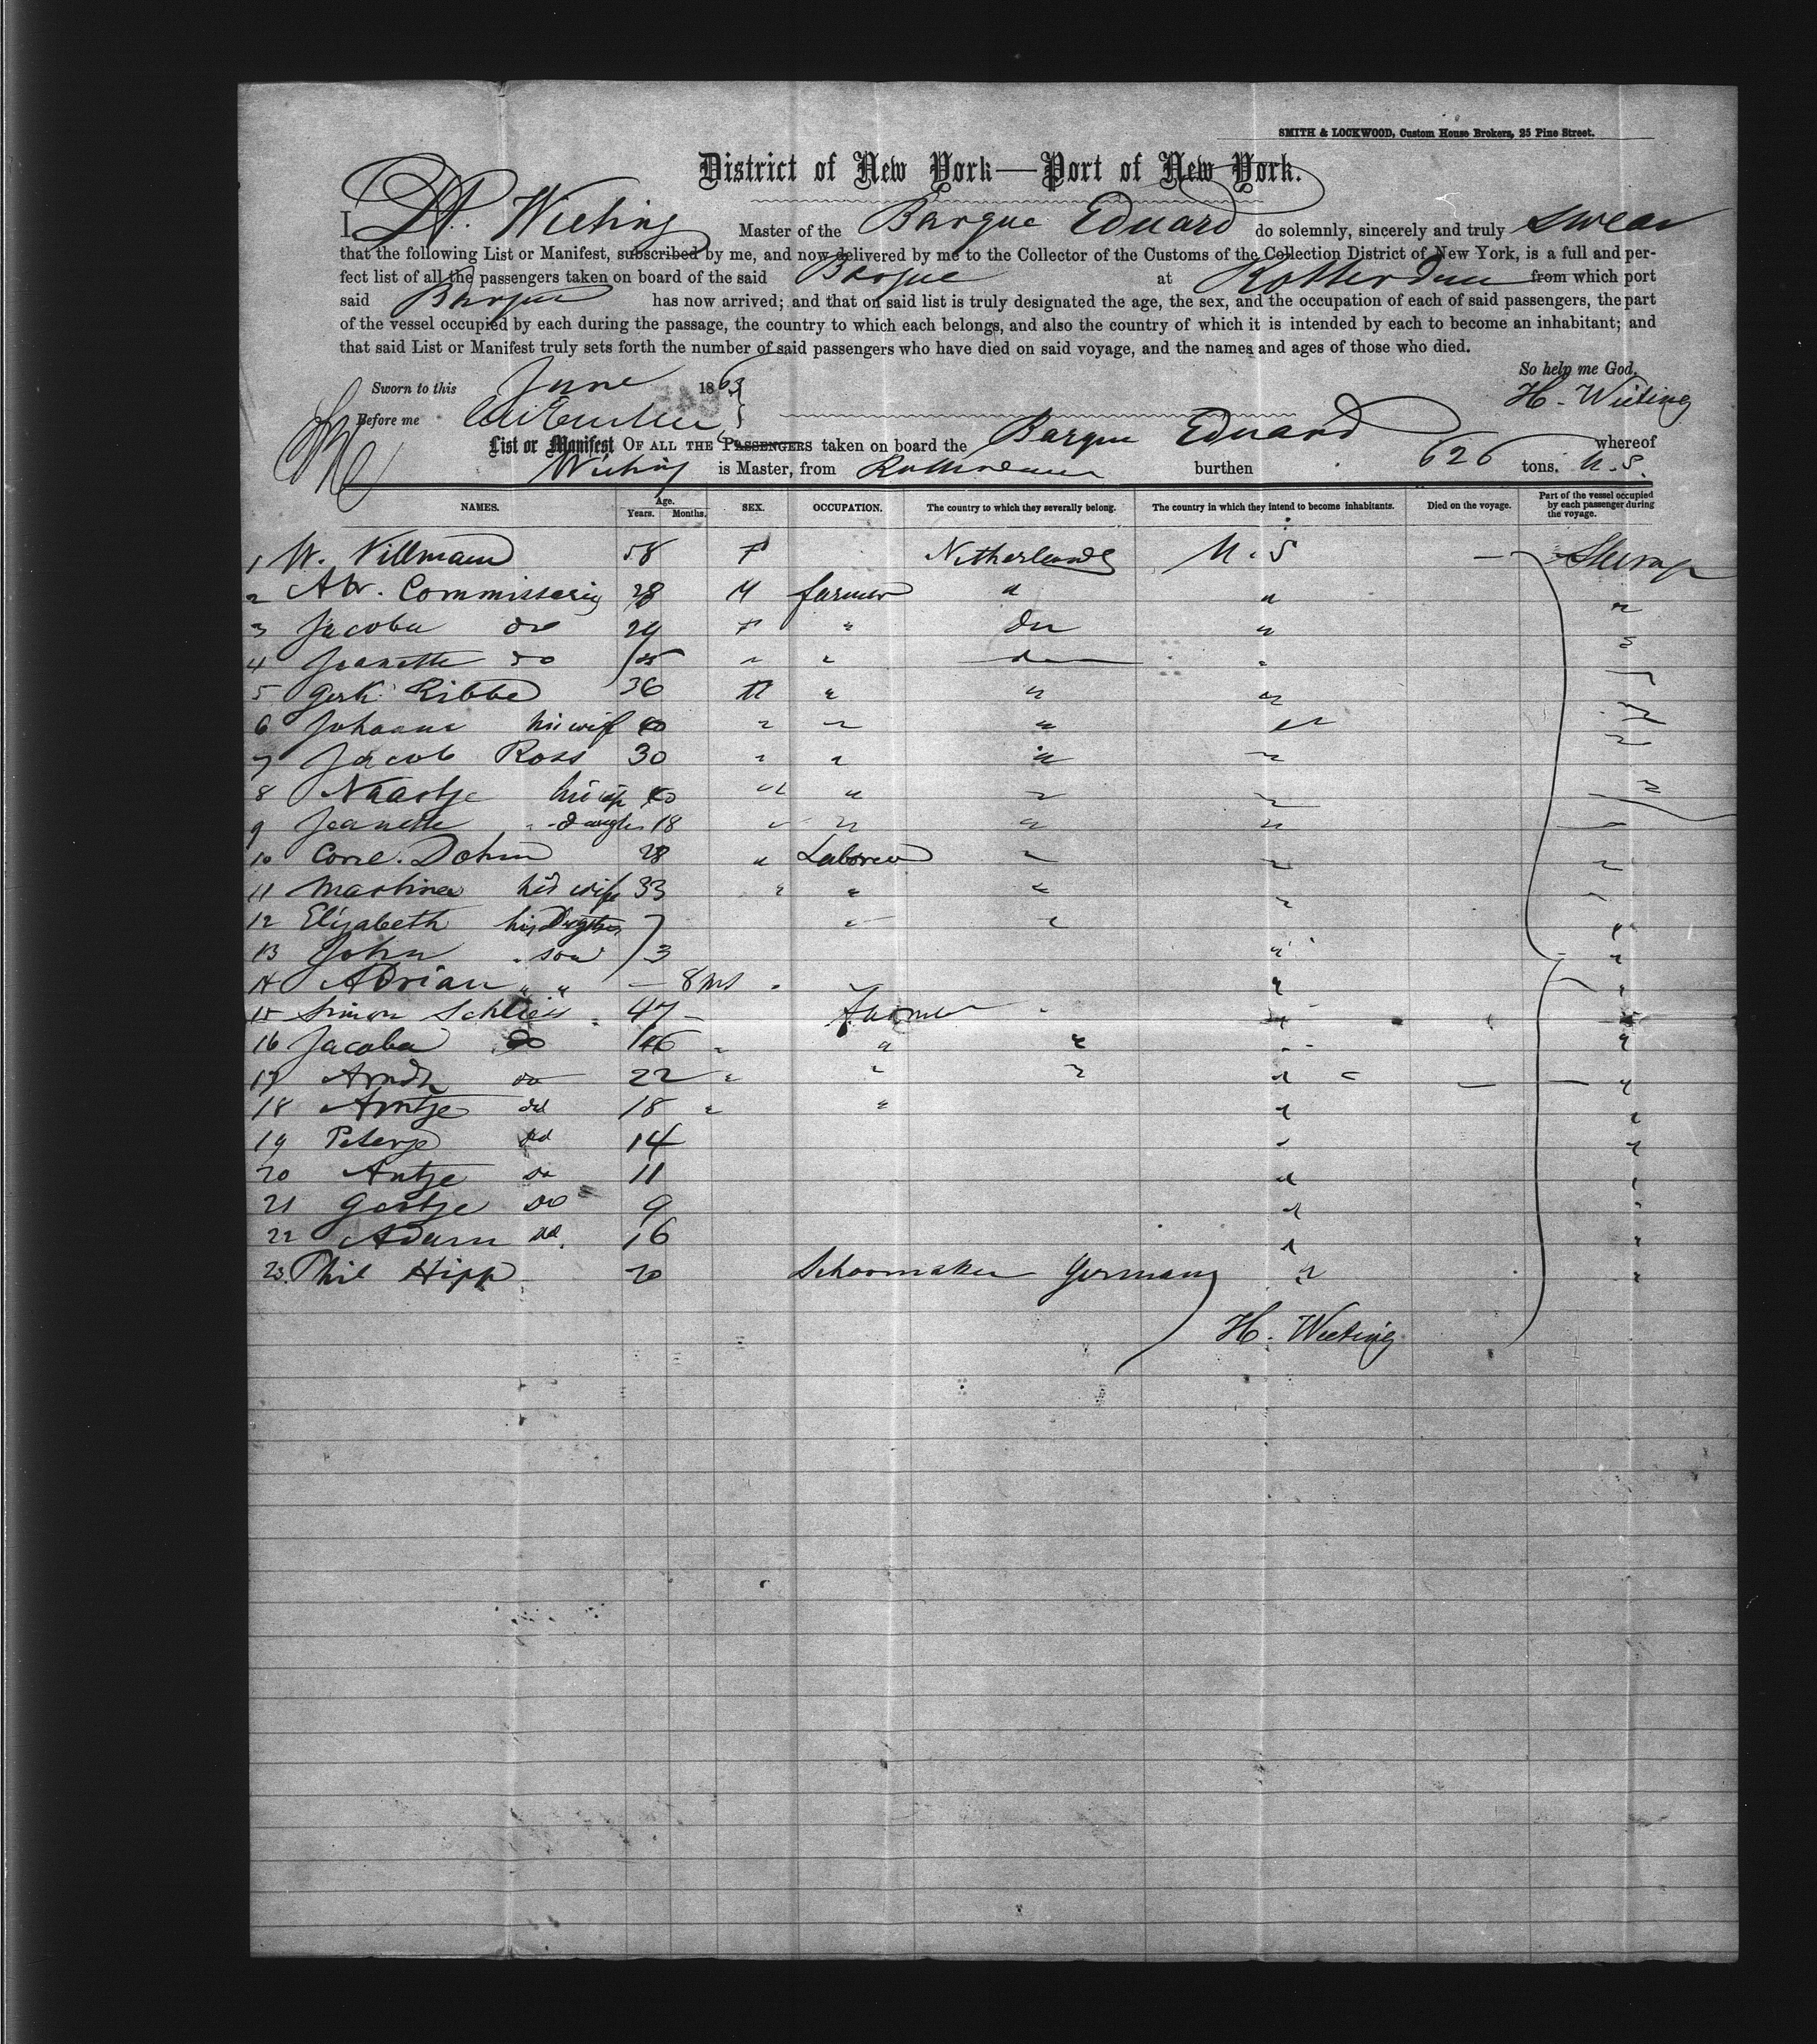 SMITH & LOCKWOOD, Custom House Brokers, 25 Pine Street.
District of New York—Port of New York.
I, H. Wieting Master of the Barque Eduard do solemnly, sincerely and truly swear
that the following List or Manifest, subscribed by me, and now delivered by me to the Collector of the Customs of the Collection District of New York, is a full and per-
fect list of all the passengers taken on board of the said Barque at Rotterdam from which port
said Barque has now arrived; and that on said list is truly designated the age, the sex, and the occupation of each of said passengers, the part
of the vessel occupied by each during the passage, the country to which each belongs, and also the country of which it is intended by each to become an inhabitant; and
that said List or Manifest truly sets forth the number of said passengers who have died on said voyage, and the names and ages of those who died.
So help me God.
Sworn to this June 1863
H. Wieting
Before me
List or Manifest OF ALL THE PASSENGERS taken on board the Barque Eduard whereof
Wieting is Master, from Rotterdam burthen 626 tons. U.S.
NAMES. Age. Years. Months. SEX. OCCUPATION. The country to which they severally belong. The country in which they intend to become inhabitants. Died on the voyage. Part of the vessel occupied by each passenger during the voyage.
1 W. Villmann 58 F Netherlands U.S —
2 Commisserig 28 M farmer " " "
3 Jacoba do 24 F " do "
4 Jeanette do " " do "
5 Gerk. Ribbe 36 M " " "
6 Johanna his wife 40 " " " "
7 Jacob Ross 30 " " " "
8 Naatje his wife 40 " " " "
9 Jeanette " daughter 18 " " " "
10 Corne. Dohm 28 " Laborer " " "
11 Martina his wife 33 " " " " "
12 Elizabeth his Daughter 7 " " "
13 John " son 3 " "
14 Adrian " " — 8 ms " " "
15 Simon Schleis 47 — Farmer " " "
16 Jacoba do 46 " " " "
17 Arndt do 22 " " " " — "
18 Arntje do 18 " " " "
19 Peterje do 14 " "
20 Antje do 11 " "
21 Gertje do 9 " "
22 Adam do. 16 " "
23. Phil Hipp 20 Schoomaker Germany " "
H. Wieting